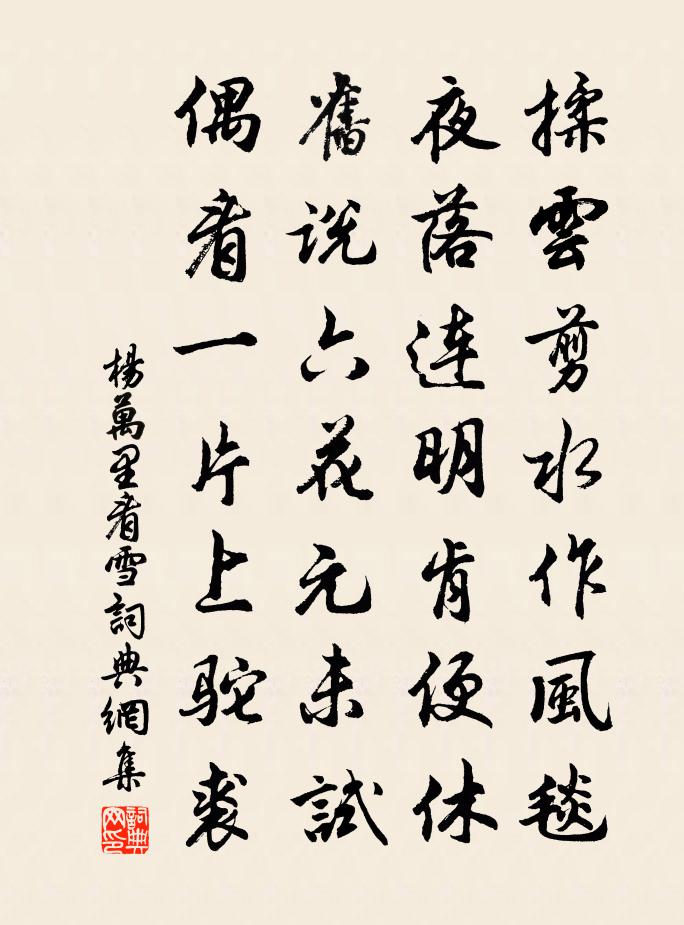 揉雲剪水作風毯
夜落連明肯便休
舊說六花元未試
偶看一片上駝裘
楊萬里看雪詞典網集
詞典網印